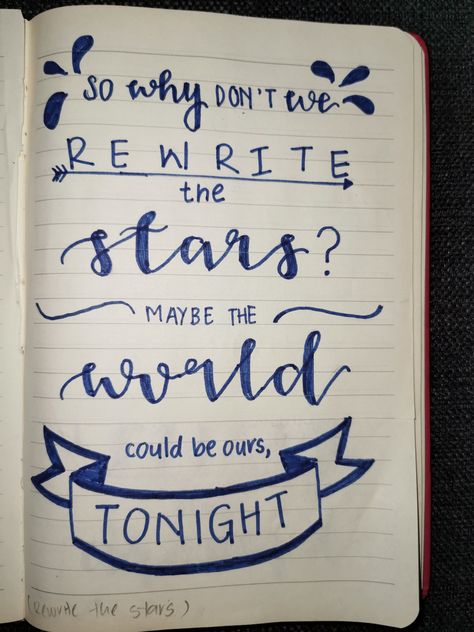 SO why DON'T we
REWRITE
the
stars?
MAYBE THE
world
could be ours,
TONIGHT
(Rewrite the stars)